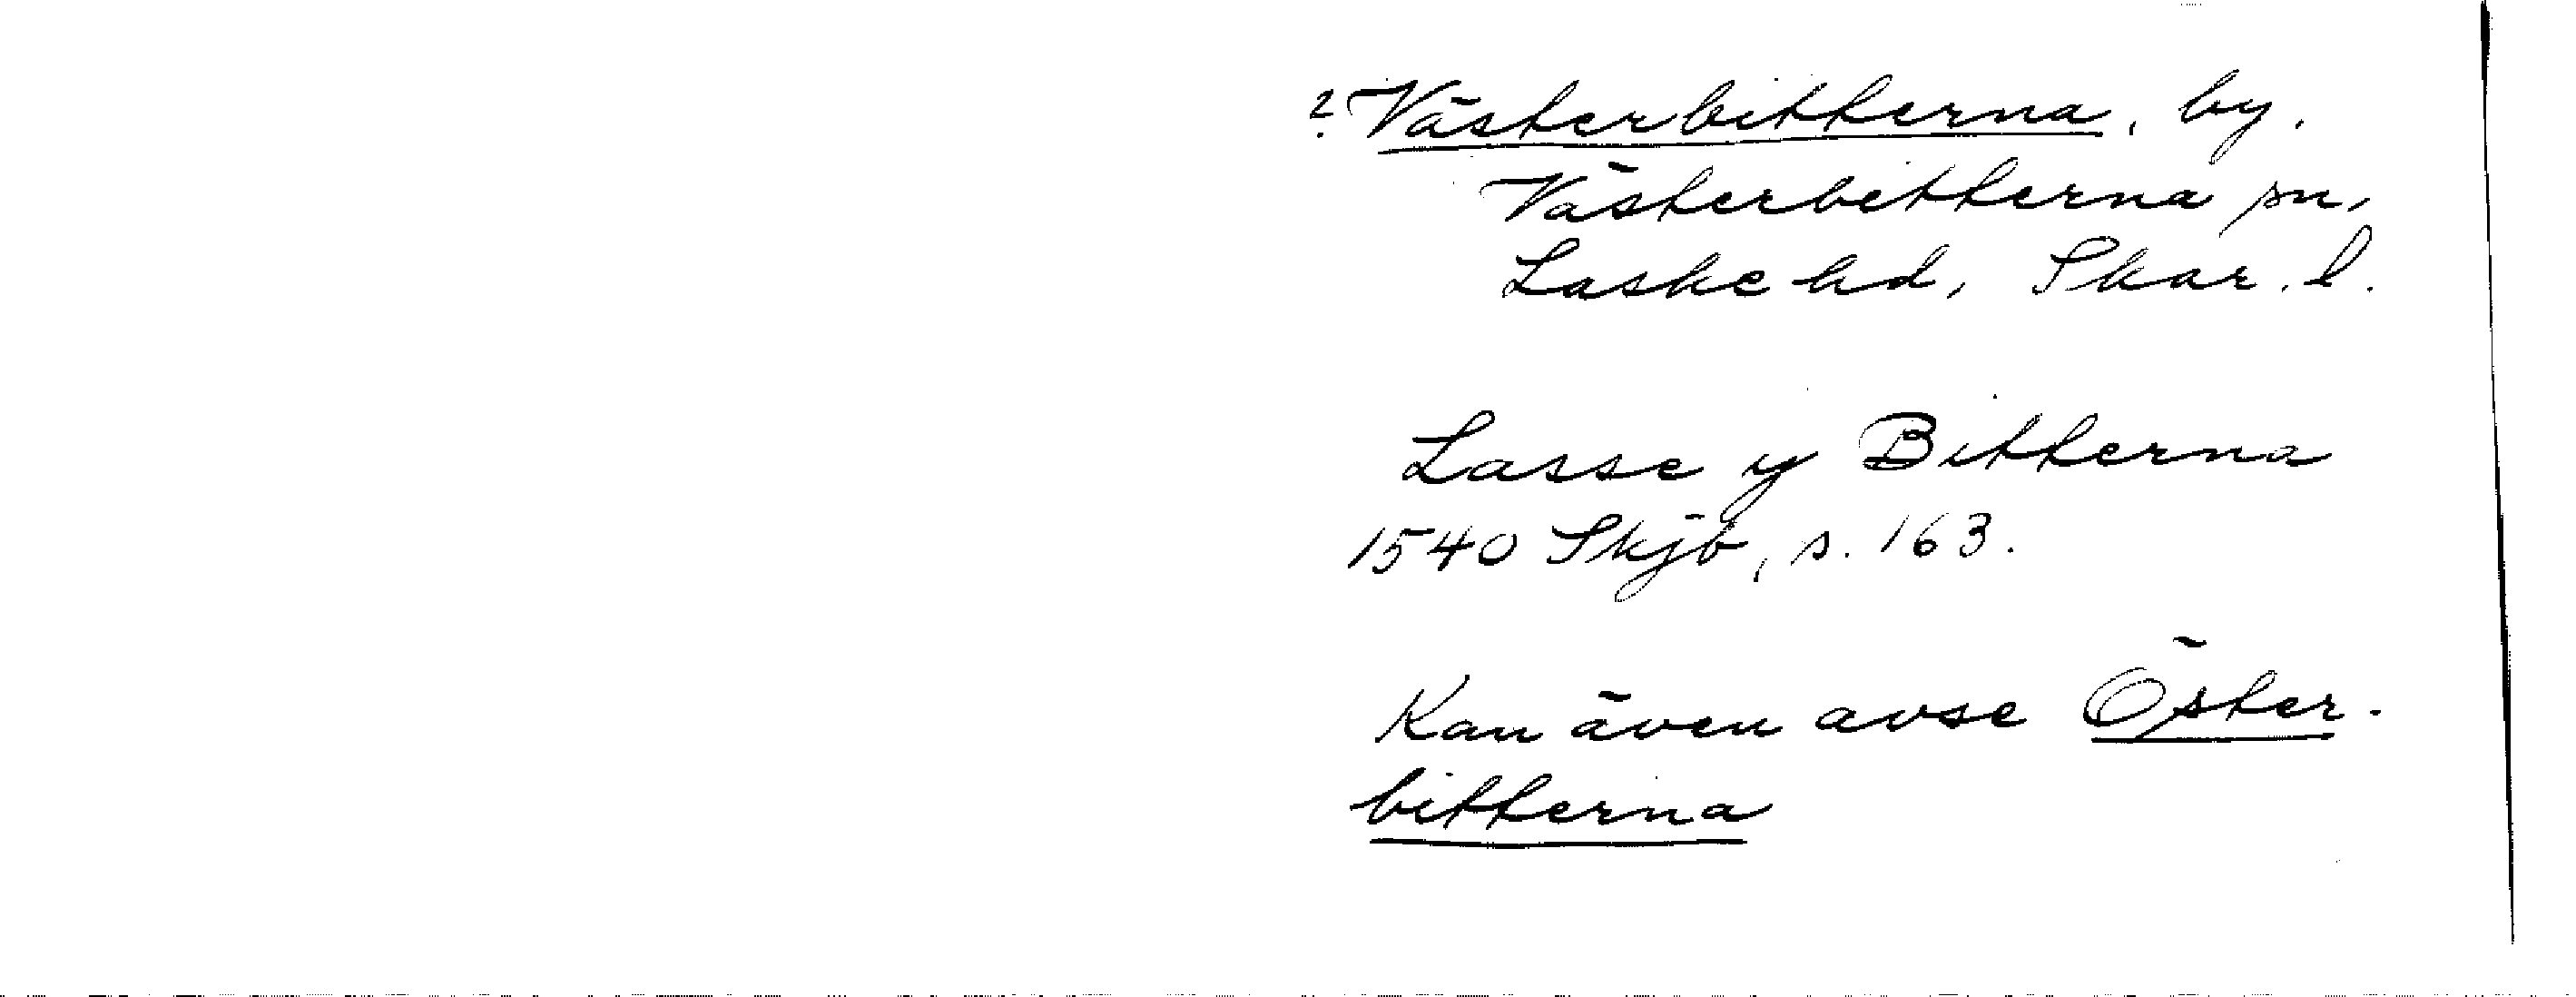 ? Västerbitterna, by.
Västerbitterna sn,
Laske hd, Skar. l.
Lasse y Bitterna
1540 Skjb, s. 163.
Kan även avse Öster-
bitterna